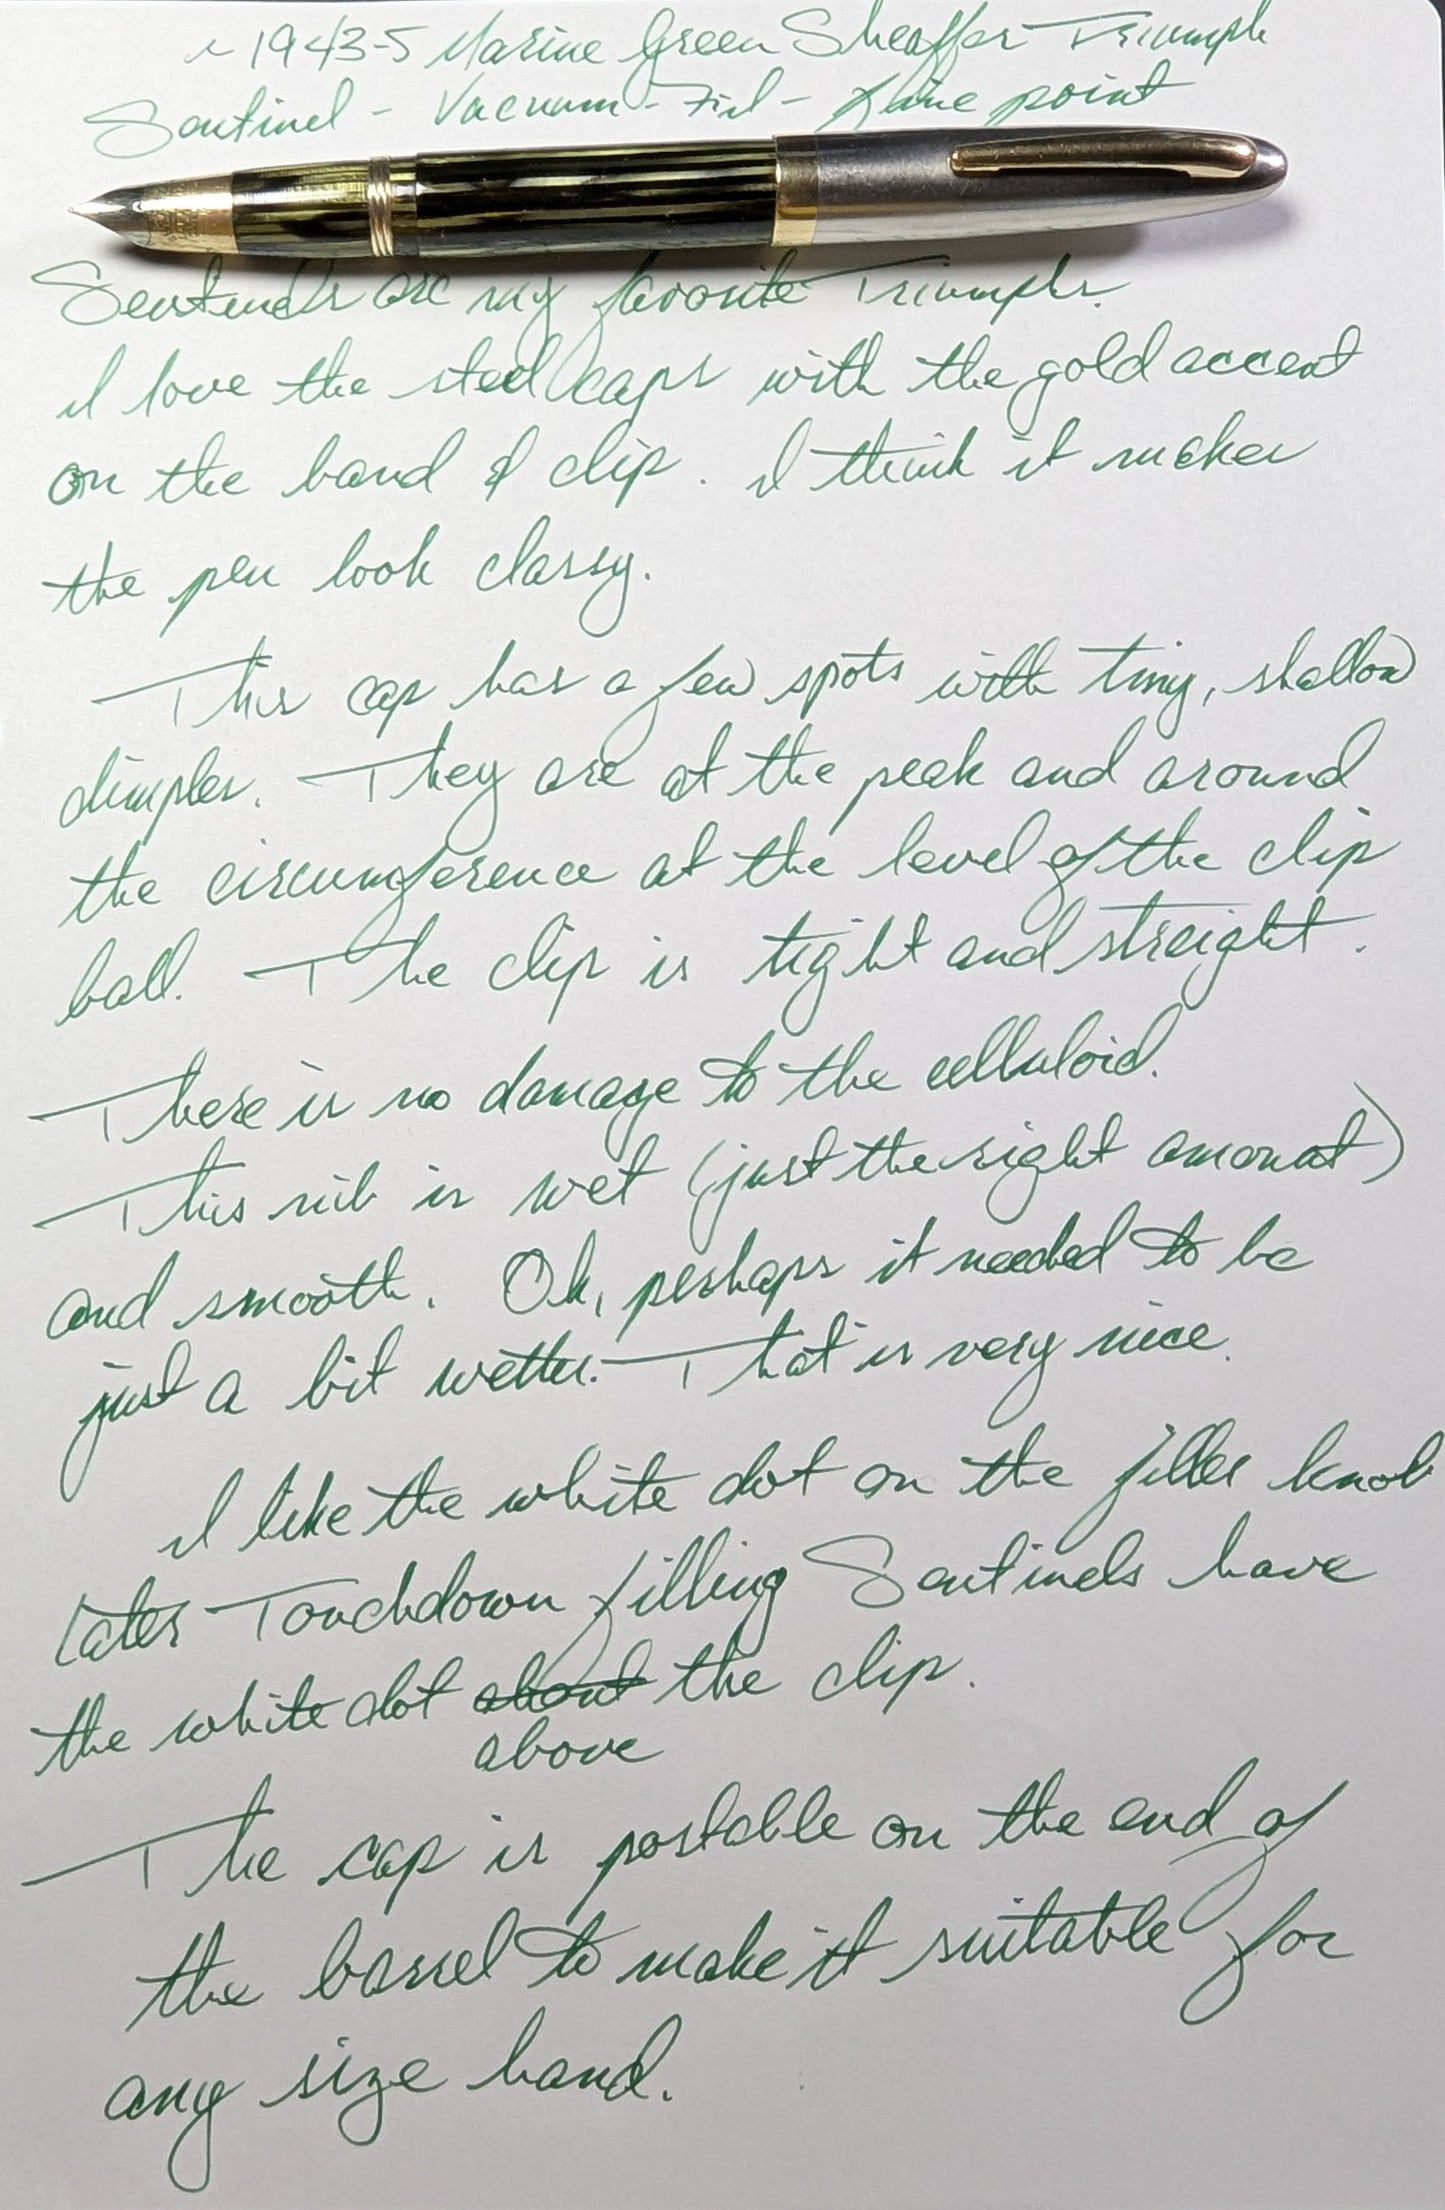 ~1943-5 Marine Green Sheaffer Triumph
Sentinel - Vacuum-Fil - Fine point
Sentinels are my favorite Triumphs.
I love the steel caps with the gold accent
on the band & clip. I think it makes
the pen look classy.
This cap has a few spots with tiny, shallow
dimples. They are at the peak and around
the circumference at the level of the clip
ball. The clip is tight and straight.
There is no damage to the celluloid.
This nib is wet (just the right amount)
and smooth. Oh, perhaps it needed to be
just a bit wetter. That is very nice.
I like the white dot on the filler knob
Later Touchdown filling Sentinels have
the white dot about the clip.
above
The cap is postable on the end of
the barrel to make it suitable for
any size hand.